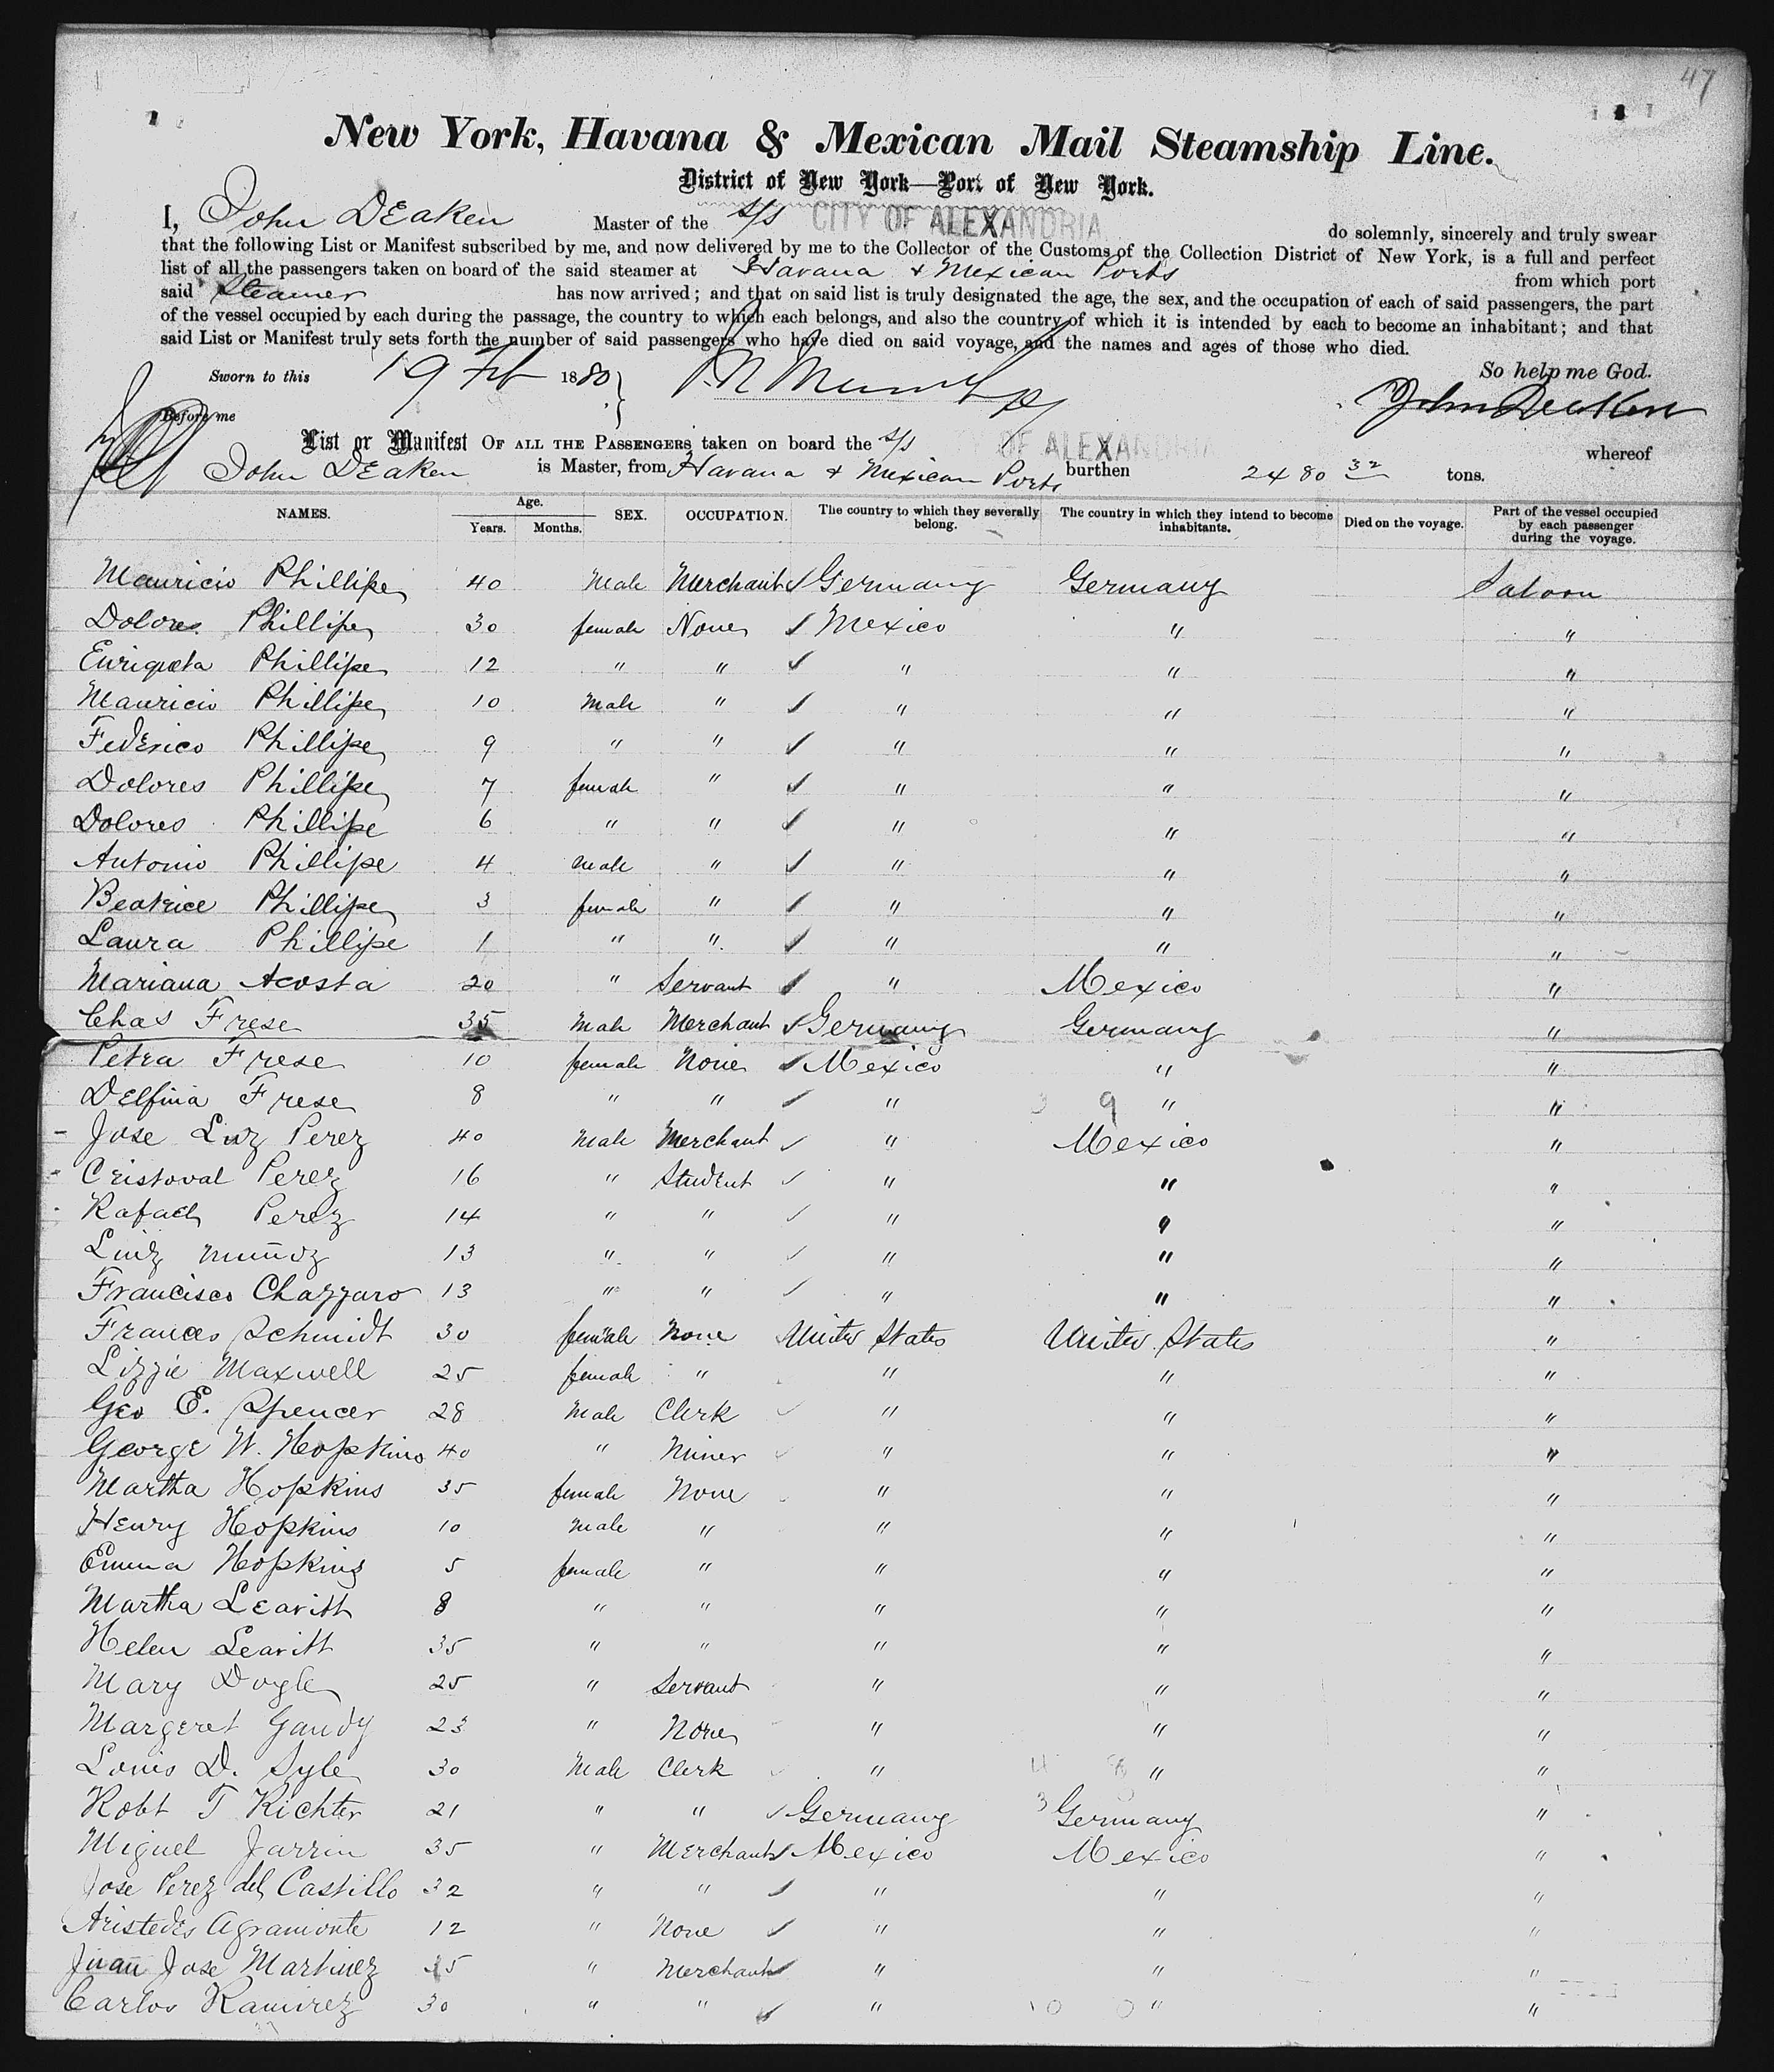 47
New York, Havana & Mexican Mail Steamship Line.
District of New York—Port of New York.
I, John DEaken Master of the S/S CITY OF ALEXANDRIA do solemnly, sincerely and truly swear
that the following List or Manifest subscribed by me, and now delivered by me to the Collector of the Customs of the Collection District of New York, is a full and perfect
list of all the passengers taken on board of the said steamer at Havana & Mexican Ports from which port
said Steamer has now arrived; and that on said list is truly designated the age, the sex, and the occupation of each of said passengers, the part
of the vessel occupied by each during the passage, the country to which each belongs, and also the country of which it is intended by each to become an inhabitant; and that
said List or Manifest truly sets forth the number of said passengers who have died on said voyage, and the names and ages of those who died.
Sworn to this 19 Feb 1880 So help me God.
Before me John Deaken
List or Manifest OF ALL THE PASSENGERS taken on board the S/S CITY OF ALEXANDRIA whereof
John DEaken is Master, from Havana & Mexican Ports burthen 2480 32 tons.
NAMES. Age. Years. Months. SEX. OCCUPATION. The country to which they severally belong. The country in which they intend to become inhabitants. Died on the voyage. Part of the vessel occupied by each passenger during the voyage.
Mauricio Phillipe 40 Male Merchant Germany Germany Saloon
Dolores Phillipe 30 female None Mexico " "
Enriqueta Phillipe 12 " " " " "
Mauricio Phillipe 10 Male " " " "
Federico Phillipe 9 " " " " "
Dolores Phillipe 7 female " " " "
Dolores Phillipe 6 " " " " "
Antonio Phillipe 4 Male " " " "
Beatrice Phillipe 3 female " " " "
Laura Phillipe 1 " " " " "
Mariana Acosta 20 " Servant " Mexico "
Chas Frese 35 Male Merchant Germany Germany "
Petra Frese 10 female None Mexico " "
Delfina Frese 8 " " " 9 " "
Jose Luz Perez 40 Male Merchant " Mexico "
Cristoval Perez 16 " Student " " "
Rafael Perez 14 " " " " "
Luiz Muñoz 13 " " " " "
Francisco Chazzaro 13 " " " " "
Frances Schmidt 30 female None United States United States "
Lizzie Maxwell 25 female " " " "
Geo E. Spencer 28 Male Clerk " " "
George W. Hopkins 40 " Miner " " "
Martha Hopkins 35 female None " " "
Henry Hopkins 10 Male " " " "
Emma Hopkins 5 female " " " "
Martha Leavitt 8 " " " " "
Helen Leavitt 35 " " " " "
Mary Dogle 25 " Servant " " "
Margeret Gandy 23 " None " " "
Louis D. Syle 30 Male Clerk " " "
Robt T Richter 21 " " Germany 3 Germany "
Miguel Jarrin 35 " Merchant Mexico Mexico "
Jose Perez del Castillo 32 " " " " "
Aristedes Agramonte 12 " None " " "
Juan Jose Martinez " Merchant " " "
Carlos Ramirez 30 " " " " "